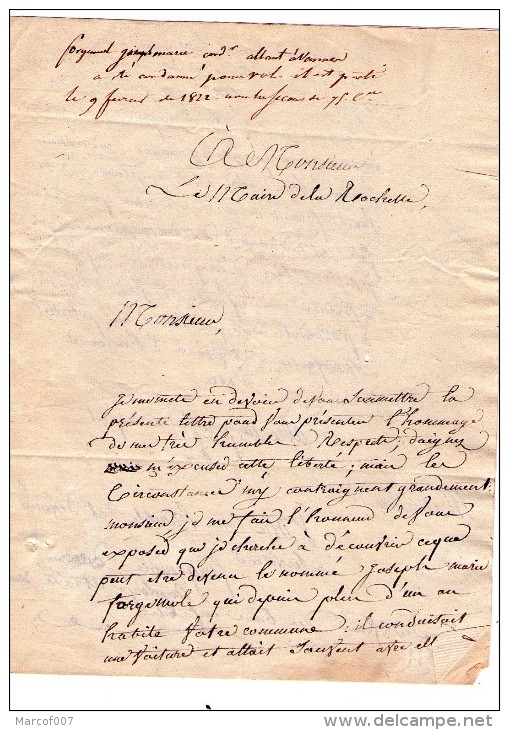 joseph marie cond.r allant à
a été condamné pour vol il est
le 9 fevrier de 1822 75 C.me
À Monsieur
Le Maire de la Rochette,
Monsieur,
Je me mete en devoir de vous Soumettre la
présente lettre pour vous présenter l'hommage
de me très humble Respects, daignez
m'excused cette liberté; mais les
Circonstance m'y contraignent grandement:
monsieur, je me fait l'honneur de vous
exposed que je cherche à découvrir ceque
peut etre devenu le nommé Joseph marie
forgemole qui depuis plus d'un an
habite Votre commune: il conduisait
une Voiture et allait Souvent avec ell
Marcof007
www.delcampe.net